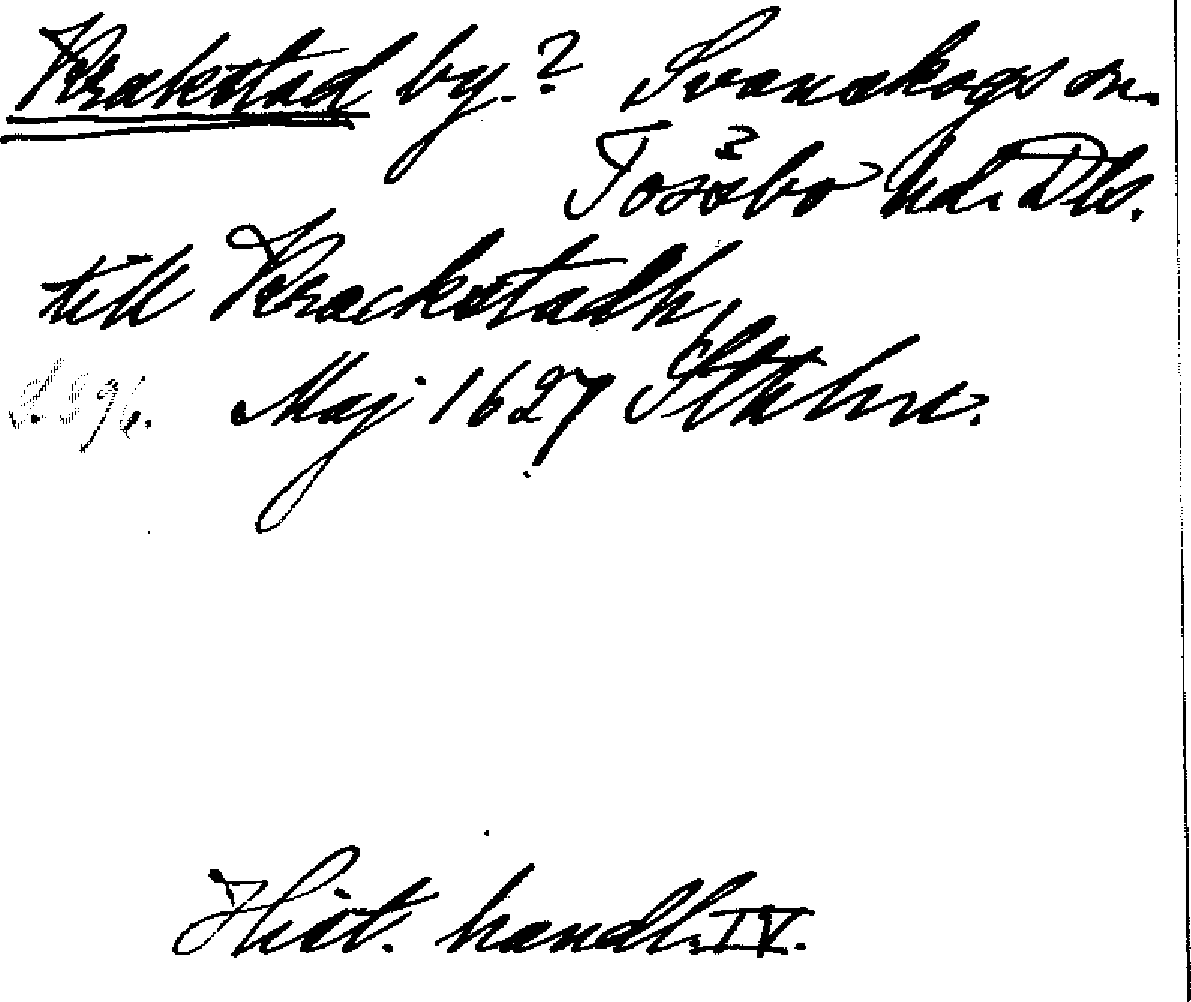 Krakstad by.? Svanskogs sn.
Tössbo hd. Dls.
till Krackstadh,
s. 296. Maj 1627 Sthlm.
Hist. handl. IV.